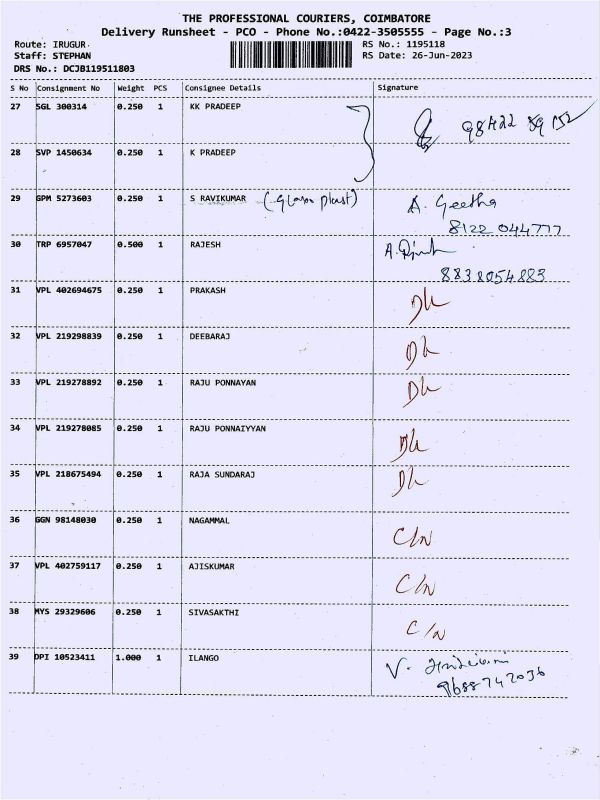 THE PROFESSIONAL COURIERS, COIMBATORE
Delivery Runsheet - PCO - Phone No.:0422-3505555 - Page No.:3
Route: IRUGUR RS No.: 1195118
Staff: STEPHAN RS Date: 26-Jun-2023
DRS No.: DCJB119511803
S No Consignment No Weight PCS Consignee Details Signature
27 SGL 300314 0.250 1 KK PRADEEP
28 SVP 1450634 0.250 1 K PRADEEP
29 GPM 5273603 0.250 1 S RAVIKUMAR A. Geetha
8122 044777
30 TRP 6957047 0.500 1 RAJESH
8838054883
31 VPL 402694675 0.250 1 PRAKASH
32 VPL 219298839 0.250 1 DEEBARAJ
33 VPL 219278892 0.250 1 RAJU PONNAYAN
34 VPL 219278085 0.250 1 RAJU PONNAIYYAN
35 VPL 218675494 0.250 1 RAJA SUNDARAJ
36 GGN 98148030 0.250 1 NAGAMMAL C/N
37 VPL 402759117 0.250 1 AJISKUMAR C/N
38 MYS 29329606 0.250 1 SIVASAKTHI C/N
39 DPI 10523411 1.000 1 ILANGO V.
9688742036